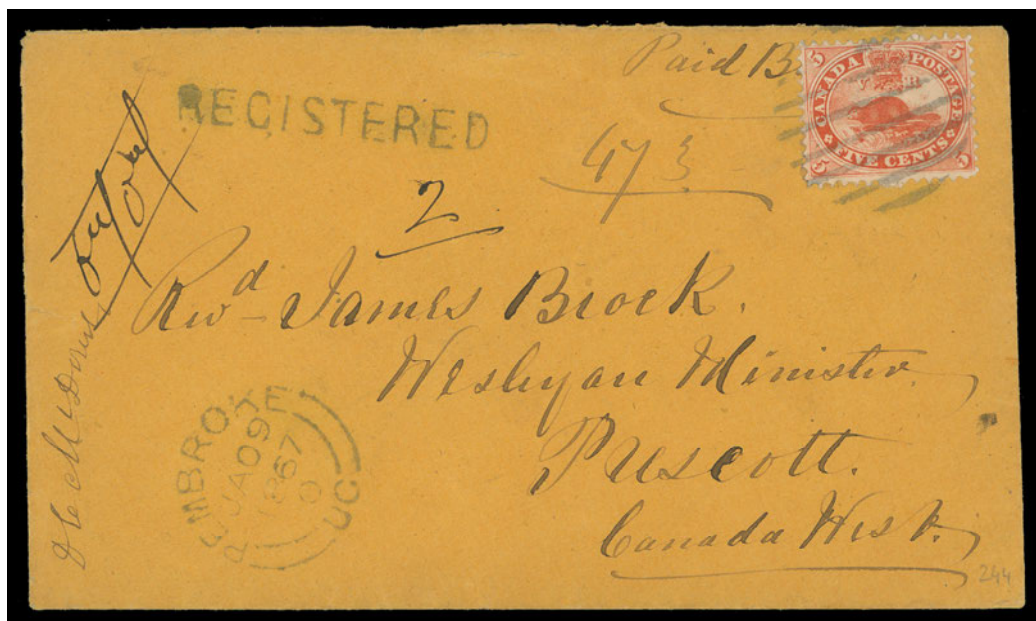 Paid
5 CANADA POSTAGE 5
5 FIVE CENTS 5
REGISTERED
473
2
Revd James Brock.
Wesleyan Minister
Prescott.
Canada West.
PEMBROKE
JA 09
1867
UC
244